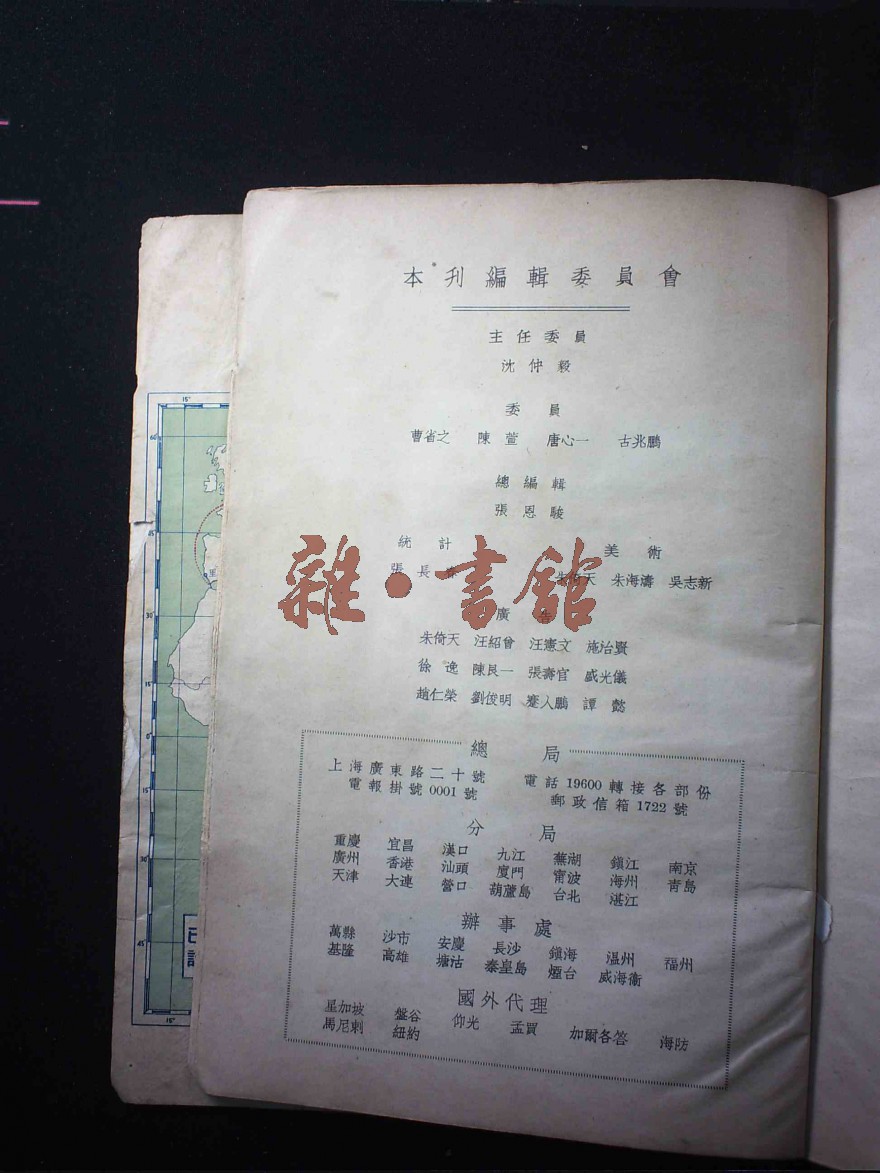 本刊編輯委員會
主任委員
沈仲毅
委員
曹省之 陳萱 唐心一 古兆鵬
總編輯
張恩駿
統計 美術
張長春 朱倚天 朱海濤 吳志新
廣告
朱倚天 汪紹曾 汪憲文 施治賢
徐逸 陳良一 張壽官 戚光儀
趙仁榮 劉俊明 蹇人鵬 譚懿
雜·書館
總局
上海廣東路二十號 電話19600轉接各部份
電報掛號0001號 郵政信箱1722號
分局
重慶 宜昌 漢口 九江 蕪湖 鎮江 南京
廣州 香港 汕頭 廈門 甯波 海州 青島
天津 大連 營口 葫蘆島 台北 湛江
辦事處
萬縣 沙市 安慶 長沙 鎮海 温州 福州
基隆 高雄 塘沽 秦皇島 煙台 威海衞
國外代理
星加坡 盤谷 仰光 孟買 加爾各答 海防
馬尼剌 紐約
15°
60
45
30
15
0°
15
30
45
15°
里
已